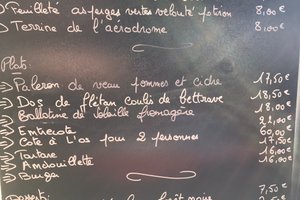 Feuilleté asperges vertes velouté potiron 8,00€
Terrine de l'aérodrome 8,00€
Plats:
Paleron de veau pommes et cidre 17,50€
Dos de flétan coulis de bettrave 18,50€
Ballotine de Volaille fromagère 18,00€
Entrecote 21,00€
Cote à l'os pour 2 personnes 60,00€
Tartare 17,50€
Andouillette 16,00€
Burger 16,00€
7,50€